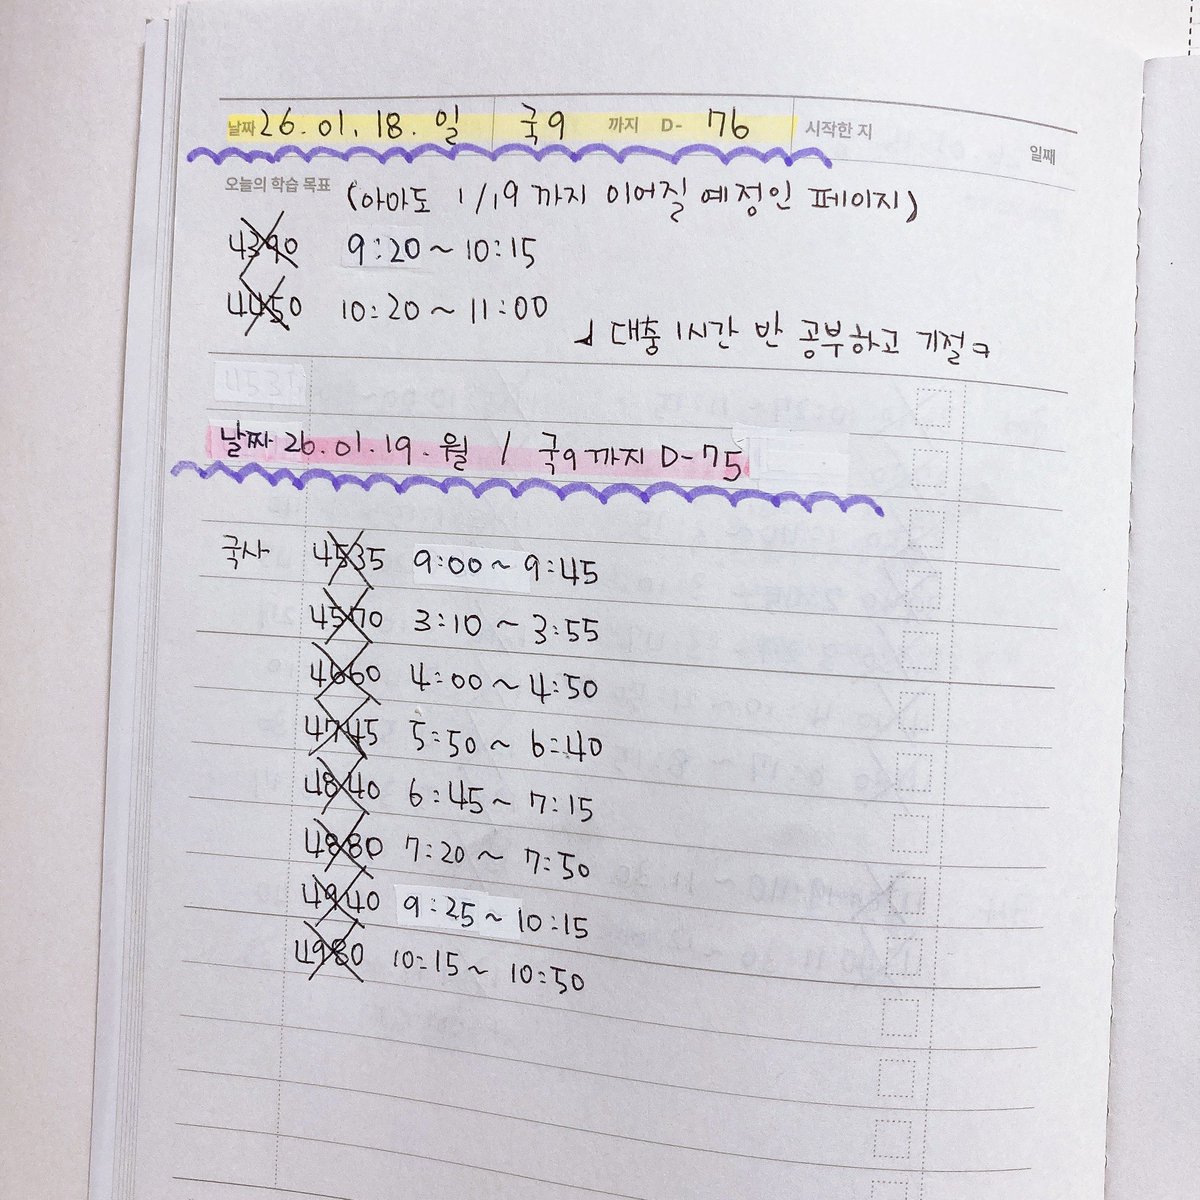 날짜 26.01.18.일 국9 까지 D- 76 시작한 지 일째
오늘의 학습 목표 (아마도 1/19 까지 이어질 예정인 페이지)
4390 9:20~10:15
4450 10:20~11:00
대충 1시간 반 공부하고 기절ㅋ
날짜 26.01.19.월 / 국9까지 D-75
국사 4535 9:00~9:45
4570 3:10~3:55
4660 4:00~4:50
4745 5:50~6:40
4840 6:45~7:15
4880 7:20~7:50
4940 9:25~10:15
4980 10:15~10:50